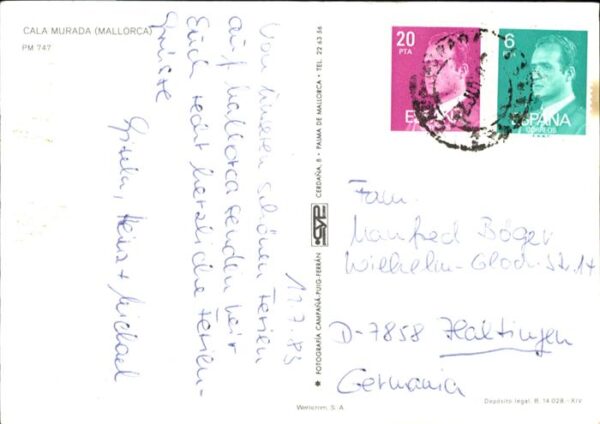 CALA MURADA (MALLORCA)
PM 747
11.7.83
Von unseren schönen Ferien
auf Mallorca senden wir
Euch recht herzliche Ferien-
grüsse
Gisela, Heinz + Michael
* FOTOGRAFÍA CAMPAÑÁ-PUIG-FERRÁN
CYP
CERDAÑA, 8 • PALMA DE MALLORCA • TEL. 22 63 56
20
PTA
ESPAÑA
6
ESPAÑA
CORREOS
Fam.
Manfred Böger
Wilhelm-Glock-Str. 14
D-7858 Haltingen
Germania
Wertcrom, S. A.
Depósito legal B. 14.028.-XIV